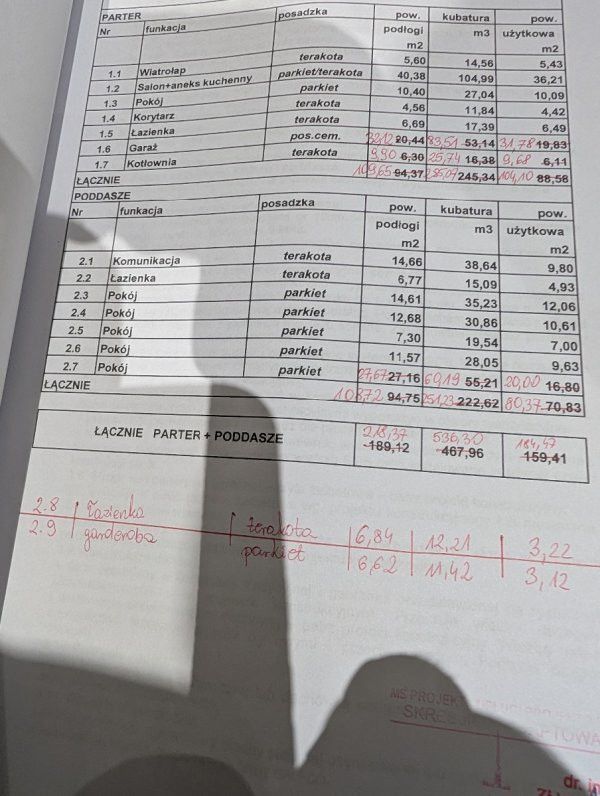 PARTER
Nr funkacja posadzka pow. podłogi m2 kubatura m3 pow. użytkowa m2
1.1 Wiatrołap terakota 5,60 14,56 5,43
1.2 Salon+aneks kuchenny parkiet/terakota 40,38 104,99 36,21
1.3 Pokój parkiet 10,40 27,04 10,09
1.4 Korytarz terakota 4,56 11,84 4,42
1.5 Łazienka terakota 6,69 17,39 6,49
1.6 Garaż pos.cem. 32,12 20,44 83,51 53,14 31,78 19,83
1.7 Kotłownia terakota 9,90 6,30 25,74 16,38 9,68 6,11
ŁĄCZNIE 109,65 94,37 285,07 245,34 104,10 88,58
PODDASZE
Nr funkacja posadzka pow. podłogi m2 kubatura m3 pow. użytkowa m2
2.1 Komunikacja terakota 14,66 38,64 9,80
2.2 Łazienka terakota 6,77 15,09 4,93
2.3 Pokój parkiet 14,61 35,23 12,06
2.4 Pokój parkiet 12,68 30,86 10,61
2.5 Pokój parkiet 7,30 19,54 7,00
2.6 Pokój parkiet 11,57 28,05 9,63
2.7 Pokój parkiet 27,67 27,16 60,19 55,21 20,00 16,80
ŁĄCZNIE 108,72 94,75 251,23 222,62 80,37 70,83
ŁĄCZNIE PARTER + PODDASZE 218,37 189,12 536,30 467,96 184,47 159,41
2.8 Łazienka terakota 6,84 12,21 3,22
2.9 garderoba parkiet 6,62 11,42 3,12
MS PROJEKT
dr. in